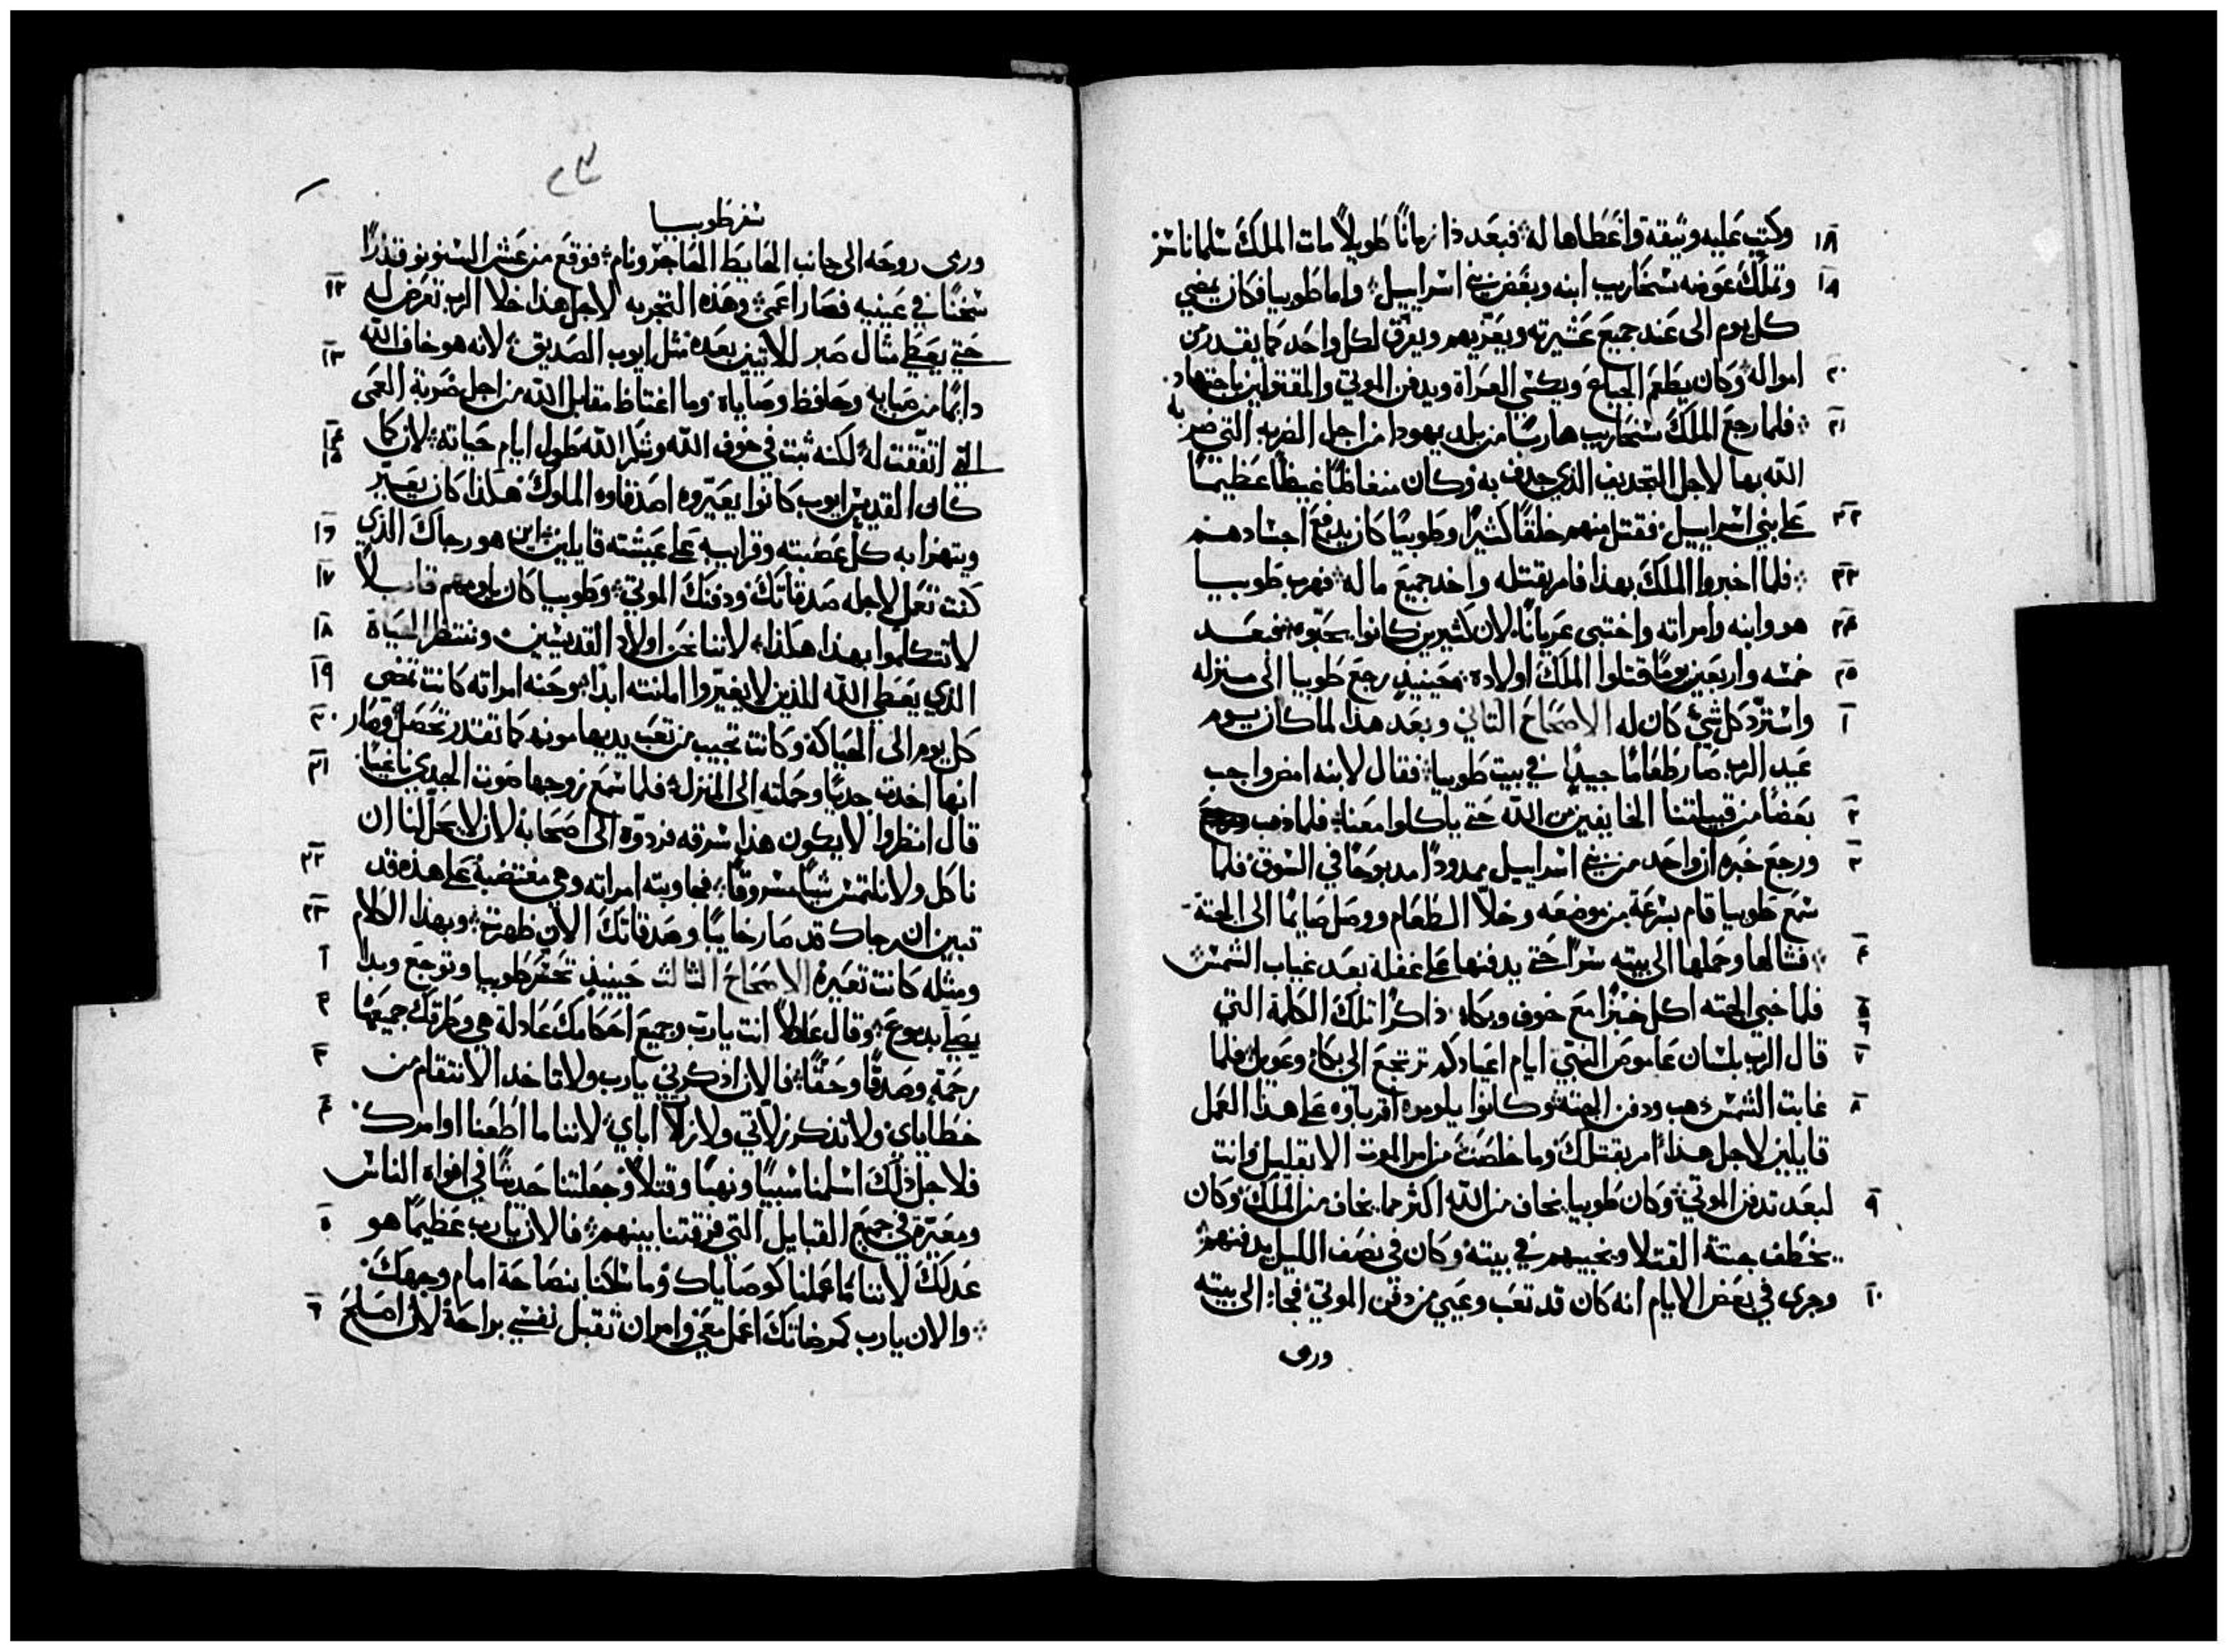 ١٨ وكتب عليه وثيقة واعطاها له فبعد ذا زمانًا طويلاً مات الملك سلماناسر
١٩ وتملك عوضه سنحاريب ابنه وبغض بني اسراييل واما طوبيا فكان يمضي
كل يوم الى عند جميع عشيرته ويعزيهم ويفرق لكل واحد كما يقدر من
٢٠ امواله وكان يطعم الجياع ويكسي العراة ويدفن الموتي والمقتولين باجتهاد
٢١ فلما رجع الملك سنحاريب هاربًا من بلد يهودا من اجل الضربه التي ضربه
الله بها لاجل التجديف الذي جدف به وكان منغاظًا غيظًا عظيمًا
٢٢ على بني اسراييل فقتل منهم خلقًا كثيرًا وطوبيا كان يدفن اجسادهم
٢٣ فلما اخبروا الملك بهذا فامر بقتله واخد جميع ما له فهرب طوبيا
٢٤ هو وابنه وامراته واختبى عريانًا لان كثيرين كانوا يحبوه فبعد
٢٥ خمسه واربعين يومًا قتلوا الملك اولاده فحينيذٍ رجع طوبيا الى منزله
١ واسترد كل شيء كان له الاصحاح الثاني وبعد هذا لما كان يوم
عيد الرب صار طعامًا جيدًا في بيت طوبيا فقال لابنه امض واجب
٢ بعضًا من قبيلتنا الخايفين من الله حتي ياكلوا معنا فلما ذهب
٣ ورجع خبره ان واحد من بني اسراييل ممدودًا مدبوحًا في السوق فلما
سمع طوبيا قام بسرعة من موضعه وخلا الطعام ووصل صايمًا الى الجتة
٤ فشالها وحملها الى بيته سرًا حتي يدفنها على غفلة بعد غياب الشمس
٥ فلما خبي الجته اكل خبزًا مع خوف وبكاء ذاكرًا تلك الكلمة التي
٦ ٧ قال الرب بلسان عاموص النبي ايام اعيادكم ترتجع الى بكاء وعويل فلما
٨ غابت الشمس ذهب ودفن الجته وكانوا يلوموه اقرباوه على هذا العمل
قايلين لاجل هذا امر بقتلك وما خلصت من امر الموت الا بقليل وانت
٩ لبعد تدفن الموتي وكان طوبيا يخاف من الله اكثر مما يخاف من الملك وكان
يخطف جتة القتلا ويخبيهم في بيته وكان في نصف الليل يدفنهم
١٠ وجرى في بعض الايام انه كان قد تعب وعيي من دفن الموتي فجاء الى بيته
ورمى
سفر طوبيا
ورمى روحه الى جانب الحايط الفاجر ونام فوقع من عش السنونو قذرًا
سخنًا في عينيه فصار اعمى وهذه التجربه لاجل هذا خلا الرب تعرض له ١٢
حتي يعطي مثال صبر للاتيين بعده مثل ايوب الصديق لانه هو خاف الله ١٣
دايمًا من صباه وحافظ وصاياه وما اغتاظ مقابل الله من اجل ضربة العمى
التي اتفقت له لكنه ثبت في خوف الله وشكر الله طول ايام حياته لان كما ١٤ ١٥
كان القديس ايوب كانوا يعيروه اصدقاوه الملوك هكذا كان يعير
ويتهزا به كل عصبته وقرايبه على عيشته قايلين اين هو رجاك الذي ١٦
كنت تعمل لاجله صدقاتك ودفنك الموتي وطوبيا كان يلومهم قايلاً ١٧
لا تتكلموا بهذا هكذا لاننا نحن اولاد القديسين وننتظر الحياة ١٨
الذي يعطي الله للذين لا يغيروا امانته ابدًا وحنه امراته كانت تمضي ١٩
كل يوم الى الحياكة وكانت تجيب من تعب يديها مونه كما تقدر تحصل وصار ٢٠
انها اخدت جديًا وحملته الى المنزل فلما سمع زوجها صوت الجدي ناغيًا ٢١
قال انظروا لا يكون هذا سرقه فردوه الى اصحابه لان لا يحل لنا ان
ناكل ولا نلتمس شيًا مسروقًا فجاوبته امراته وهي مغتضبة على هذه قد ٢٢
تبين ان رجاك قد صار خايبًا وصدقاتك الان ظهرت وبهذا الكلام ٢٣
ومثله كانت تعيره الاصحاح الثالث حينيذٍ تحسر طوبيا وتوجع وبدا ١
يصلي بدموع وقال عادلاً انت يا رب وجميع احكامك عادلة هي وطرقك جميعها ٢
رحمة وصدقًا وحقًا فالان اذكرني يا رب ولا تاخد الانتقام من ٣
خطاياي ولا تذكر زلاتي ولا زلات اباي لاننا ما اطعنا اوامرك ٤
فلاجل ذلك اسلمنا سبيًا ونهبًا وقتلاً وجعلتنا حدثًا في افواه الناس
ومعيرة في جميع القبايل التي فرقتنا بينهم فالان يا رب عظيمًا هو ٥
عدلك لاننا ما عملنا كوصاياك وما سلكنا بنصاحة امام وجهك
والان يا رب كمرضاتك اعمل معي وامر ان تقبل نفسي براحة لان اصلح ٦